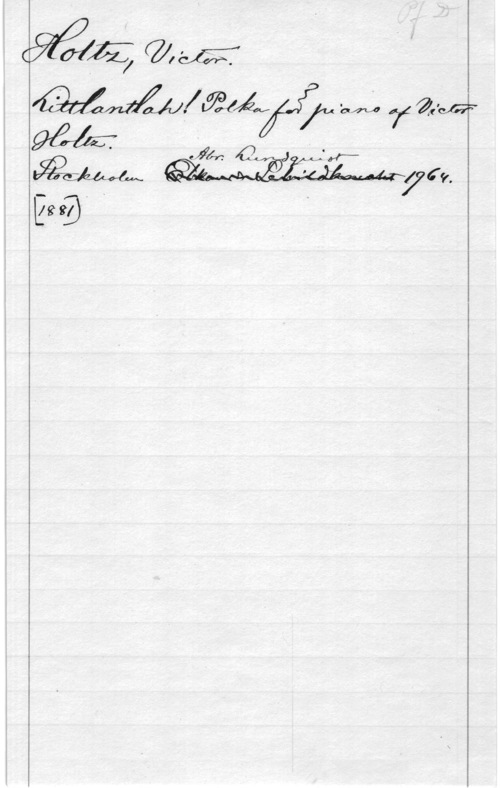 Pf D
Holtz, Victor.
Littlantlah! Polka för piano af Victor
Holtz.
Abr. Lundquist
Stockholm Elkan & Schildknecht 1964.
[1881]